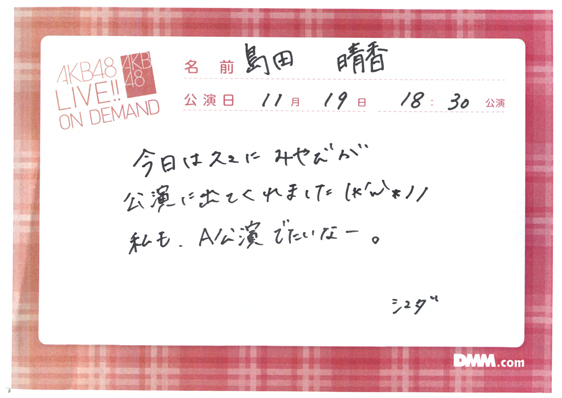 AKB48
LIVE!!
ON DEMAND
AKB
48
名前 島田 晴香
公演日 11月 19日 18:30 公演
今日は久々に みやびが
公演に出てくれました(*'ω'*)ﾉﾉ
私も、A公演でたいなー。
DMM.com